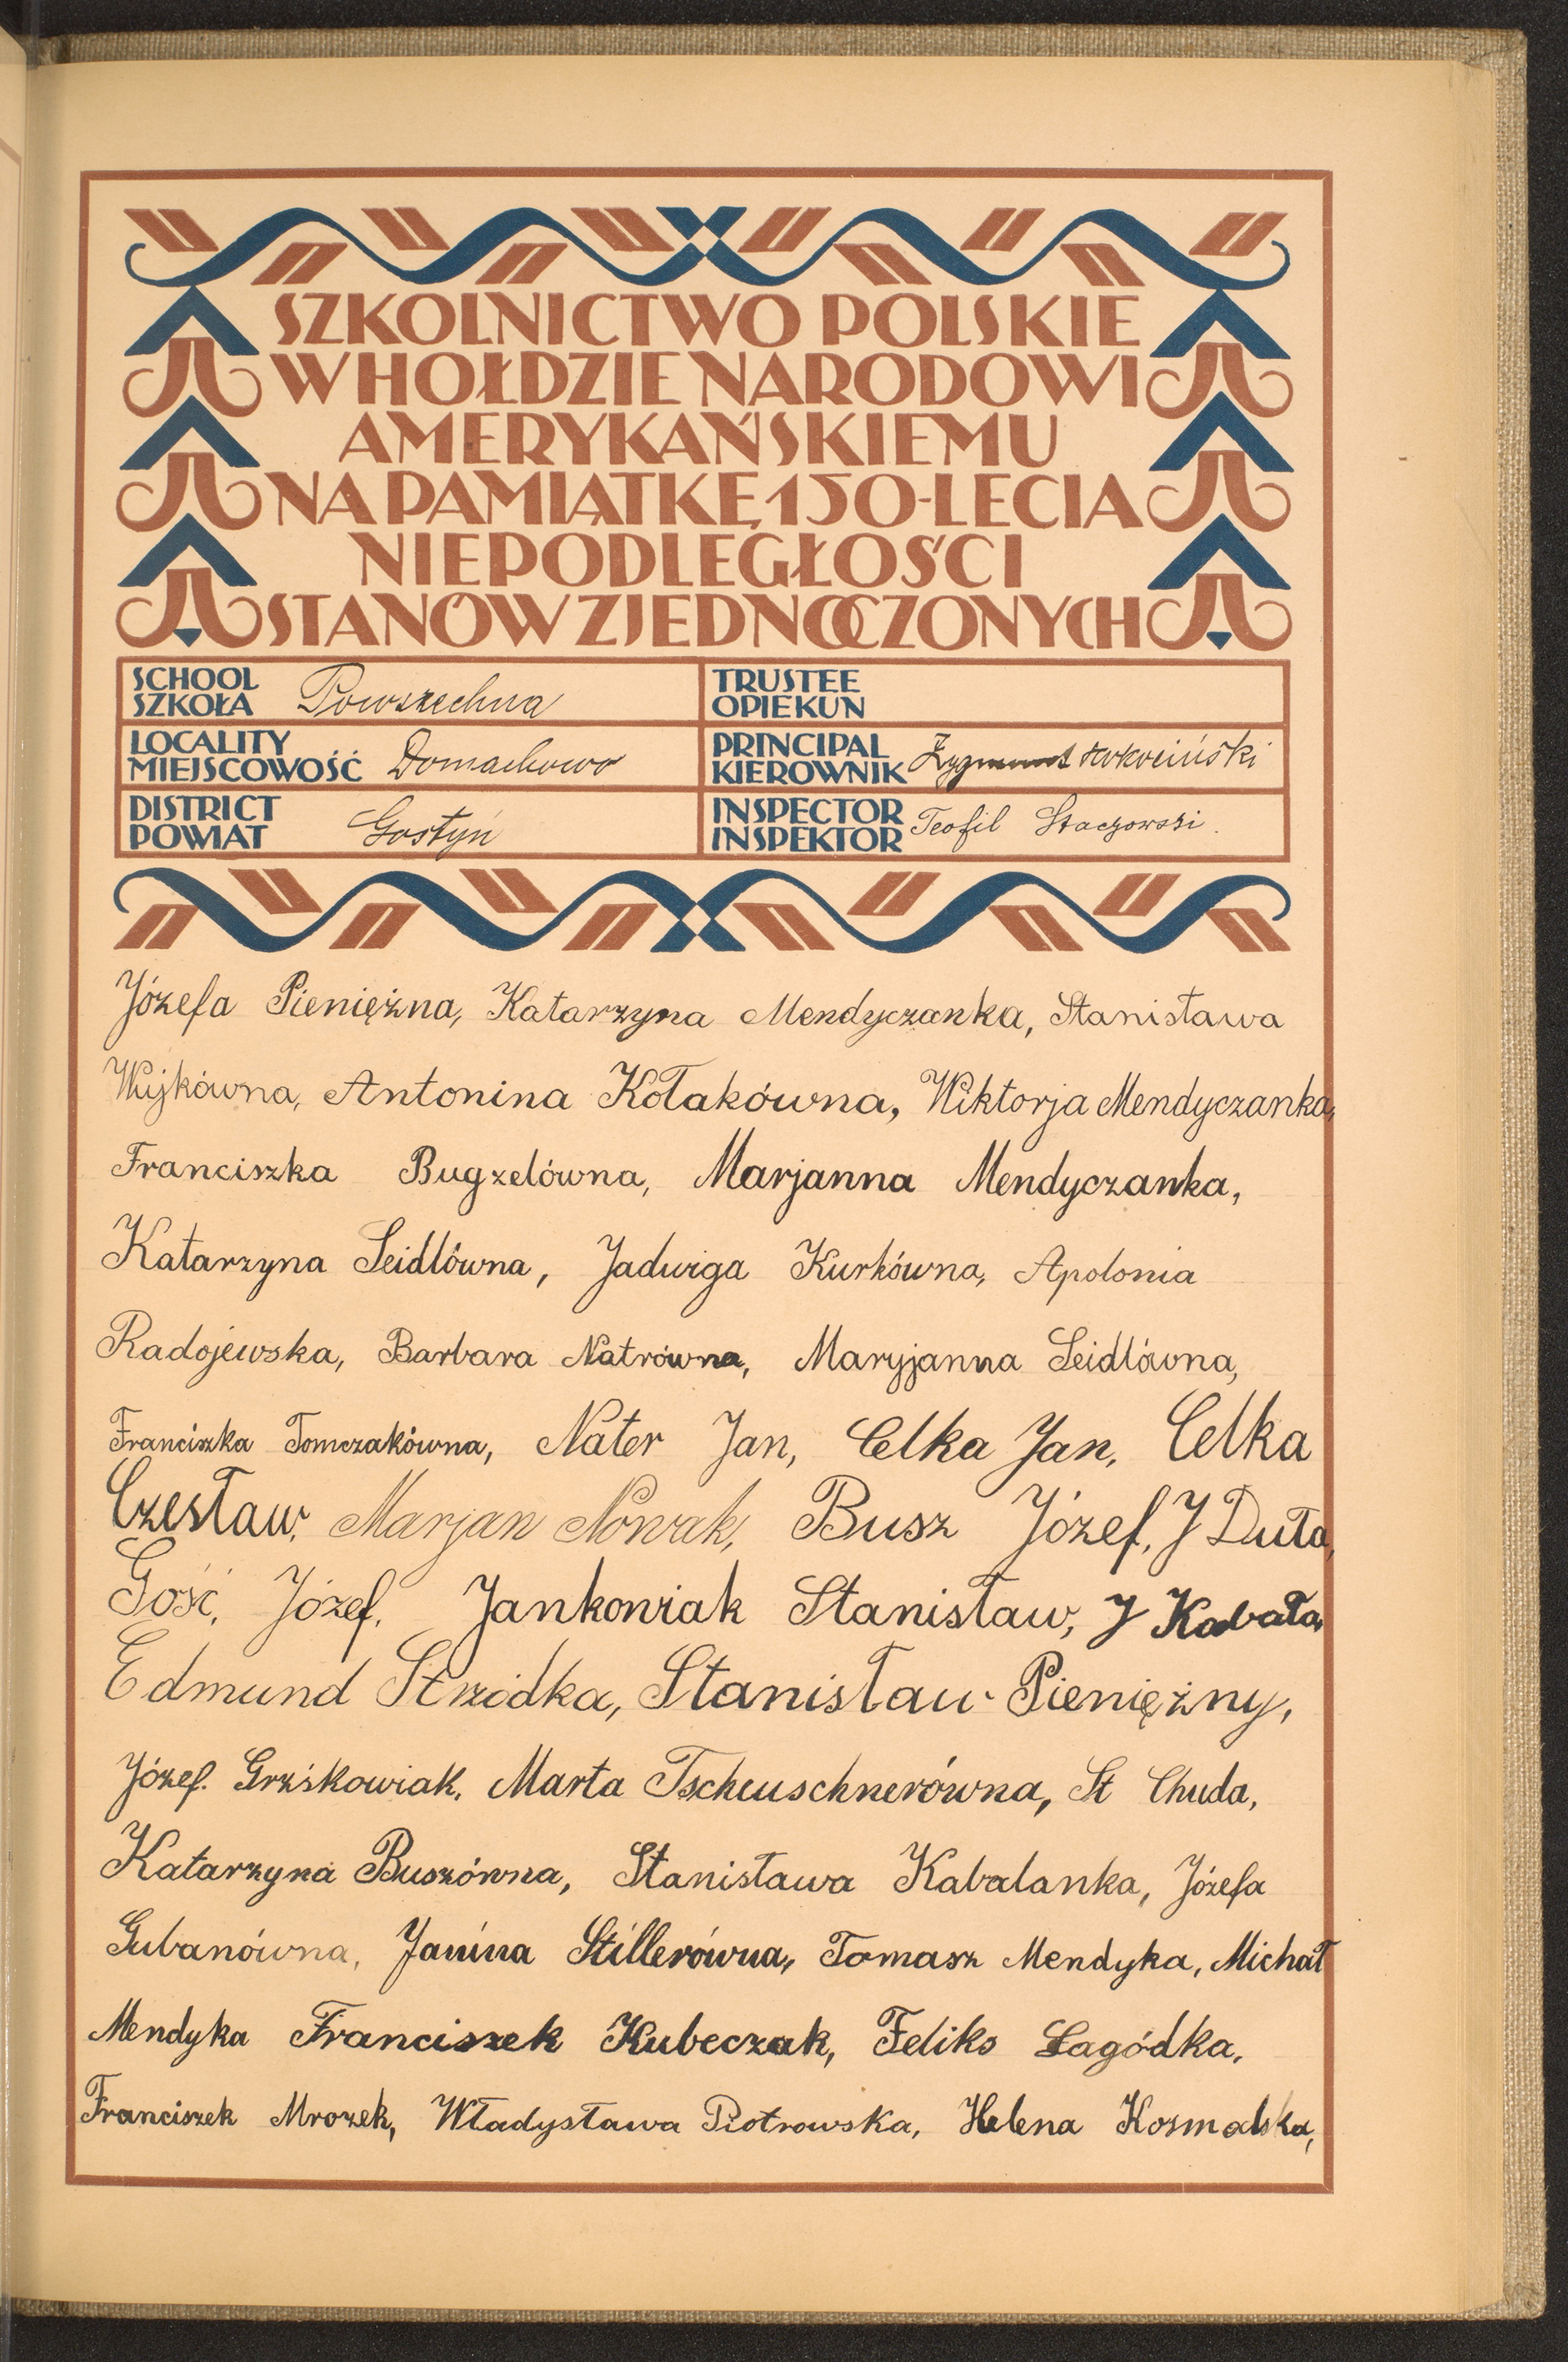 SZKOLNICTWO POLSKIE
W HOŁDZIE NARODOWI
AMERYKAŃSKIEMU
NA PAMIĄTKĘ 150-LECIA
NIEPODLEGŁOŚCI
STANÓW ZJEDNOCZONYCH
SCHOOL
SZKOŁA Powszechna
TRUSTEE
OPIEKUN
LOCALITY
MIEJSCOWOŚĆ Domachowo
PRINCIPAL
KIEROWNIK Zygmunt
DISTRICT
POWIAT Gostyń
INSPECTOR
INSPEKTOR Teofil Staczowski.
Józefa Pieniężna, Katarzyna Mendyczanka, Stanisława
Wujkówna, Antonina Kołakówna, Wiktorja Mendyczanka,
Franciszka Bugzelówna, Marjanna Mendyczanka,
Katarzyna Seidlówna, Jadwiga Kurkówna, Apolonia
Radojewska, Barbara Natrówna, Maryjanna Seidlówna,
Franciszka Tomczakówna, Nater Jan, Celka Jan, Celka
Czesław, Marjan Nowak, Busz Józef, J Duta,
Gość, Józef, Jankowiak Stanisław, J Kabała,
Edmund Strzódka, Stanisław Pieniężny,
Józef. Grzśkowiak, Marta Tscheuschnerówna, St Chuda,
Katarzyna Buszówna, Stanisława Kabalanka, Józefa
Gubanówna, Janina Stillerówna, Tomasz Mendyka, Michał
Mendyka Franciszek Kubeczak, Feliks Łagódka,
Franciszek Mrozek, Władysława Piotrowska, Helena Kozmalska,